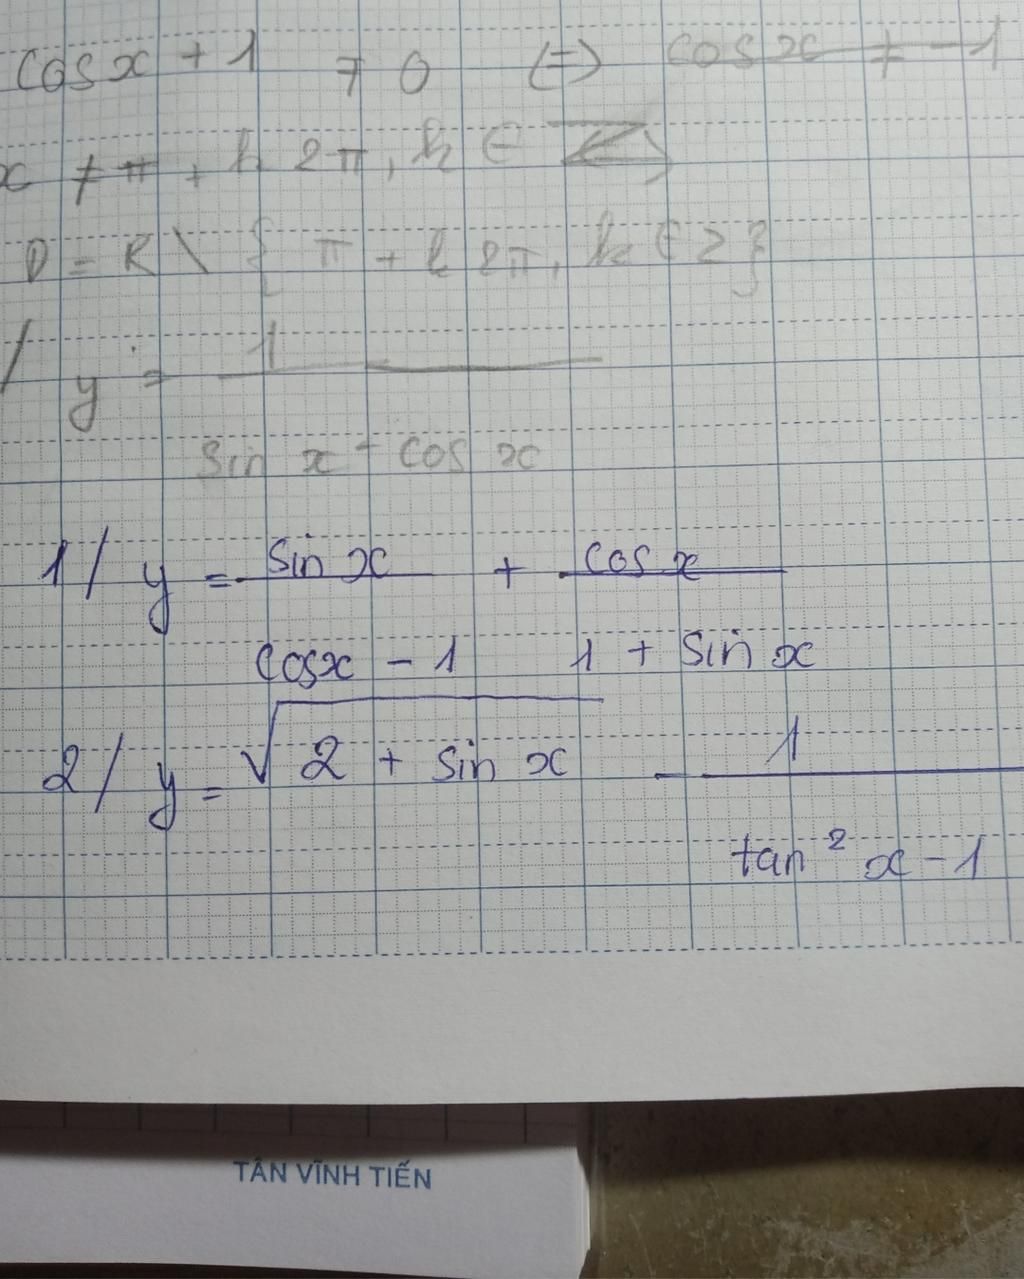 cos x + 1 ≠ 0 (=) cos x ≠ -1
x ≠ π + k 2π, k ∈ Z
D = R \ { π + k 2π, k ∈ Z }
/ y = 1
sin x - cos x
1/ y = sin x + cos x
cos x - 1 1 + sin x
2/ y = √2 + sin x - 1
tan² x - 1
TÂN VĨNH TIẾN